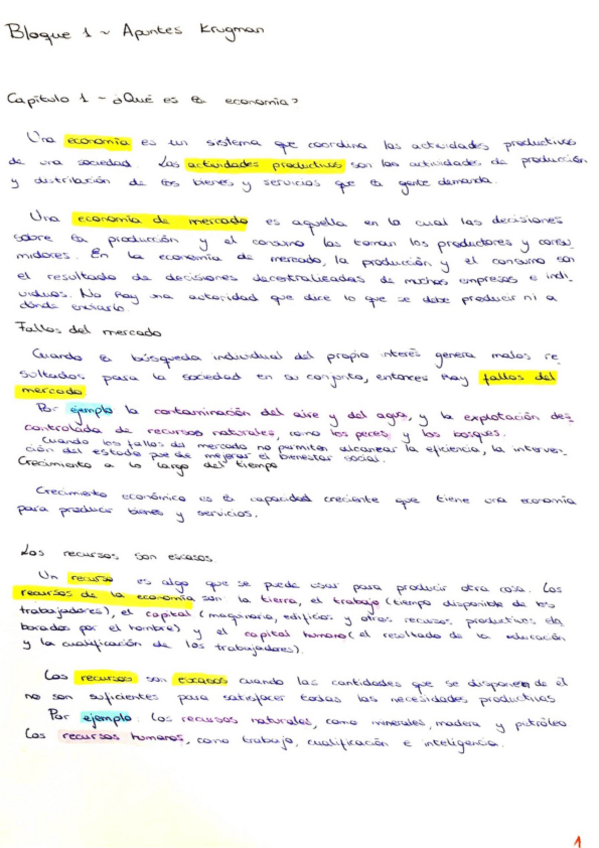 Bloque 1 ~ Apuntes Krugman
Capítulo 1 - ¿Qué es la economía?
Una economía es un sistema que coordina las actividades productivas
de una sociedad. Las actividades productivas son las actividades de producción
y distribución de los bienes y servicios que la gente demanda.
Una economía de mercado es aquella en la cual las decisiones
sobre la producción y el consumo las toman los productores y consu_
midores. En la economía de mercado, la producción y el consumo son
el resultado de decisiones decentralizadas de muchas empresas e indi_
viduos. No hay una autoridad que dice lo que se debe producir ni a
dónde enviarlo.
Fallos del mercado
Cuando la búsqueda individual del propio interés genera malos re_
sultados para la sociedad en su conjunto, entonces hay fallos del
mercado
Por ejemplo la contaminación del aire y del agua, y la explotación des_
controlada de recursos naturales, como los peces y los bosques.
Cuando los fallos del mercado no permiten alcanzar la eficiencia, la interven_
ción del estado puede mejorar el bienestar social.
Crecimiento a lo largo del tiempo
Crecimiento económico es la capacidad creciente que tiene una economía
para producir bienes y servicios.
Los recursos son escasos
Un recurso es algo que se puede usar para producir otra cosa. Los
recursos de la economía son: la tierra, el trabajo (tiempo disponible de los
trabajadores), el capital (maquinaria, edificios y otros recursos productivos ela_
borados por el hombre) y el capital humano (el resultado de la educación
y la cualificación de los trabajadores).
Los recursos son escasos cuando las cantidades que se disponen de él
no son suficientes para satisfacer todas las necesidades productivas
Por ejemplo: Los recursos naturales, como minerales, madera y petróleo
Los recursos humanos, como trabajo, cualificación e inteligencia.
1